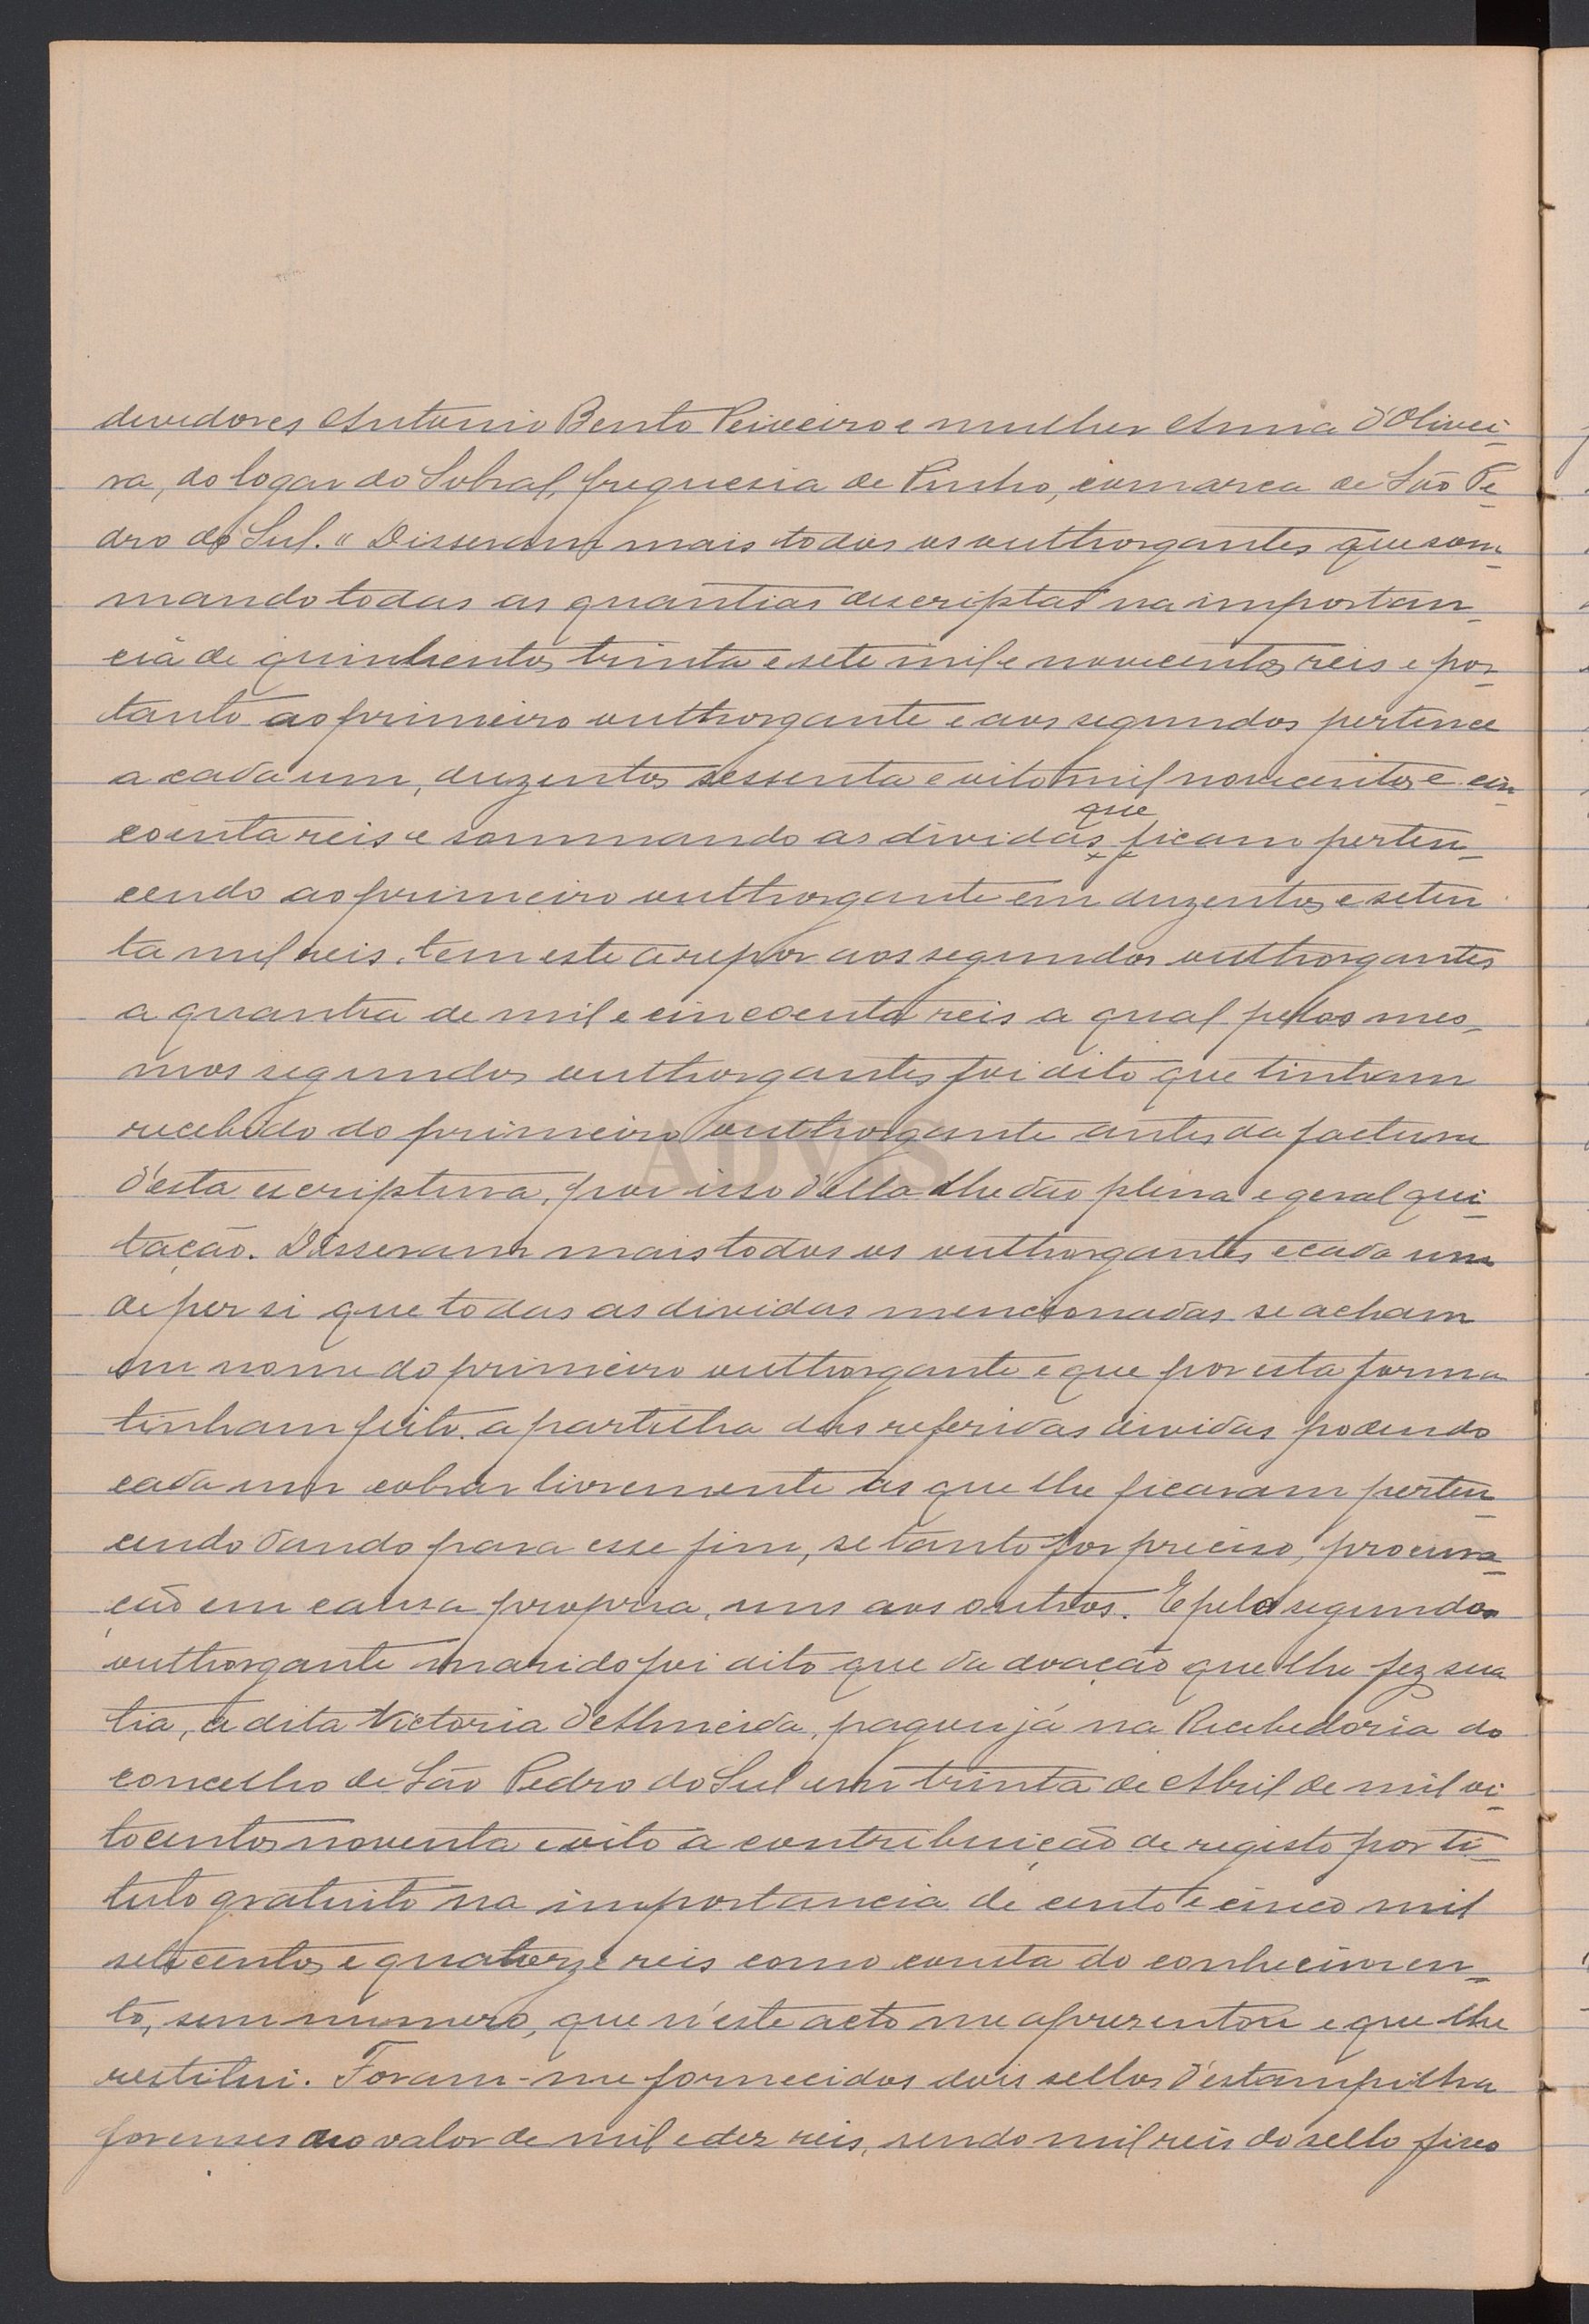 devedores Antonio Bento Peixeiro e mulher Anna d'Olivei-
ra, do logar do Sobral, freguesia de Pinho, comarca de São Pe-
dro do Sul. " Disseram mais todos os outhorgantes que som-
mando todas as quantias descriptas na importan-
cia de quinhentos trinta e sete mil e novecentos reis e por-
tanto ao primeiro outhorgante e aos segundos pertence
a cada um, duzentos sessenta e oito mil novecentos e cin-
coenta reis e sommando as dividas que ficam perten-
cendo ao primeiro outhorgante em duzentos e seten
ta mil reis, tem este a repor aos segundos outhorgantes
a quantia de mil e cincoenta reis a qual pelos mes-
mos segundos outhorgantes foi dito que tinham
recebido do primeiro outhorgante antes da factura
d'esta escriptura, por isso d'ella lhe dão plena e geral qui-
tação. Disseram mais todos os outhorgantes e cada um
de per si que todas as dividas mencionadas se acham
em nome do primeiro outhorgante e que por esta forma
tinham feito a partilha das referidas dividas podendo
cada um cobrar livremente as que lhe ficaram perten-
cendo dando para esse fim, se tanto for preciso, procura-
ção em causa propria, uns aos outros. E pelo segundo
outhorgante marido foi dito que da doação que lhe fez sua
tia, a dita Victoria d'Almeida, pagou já na Recebedoria do
concelho de São Pedro do Sul em trinta de Abril de mil oi-
tocentos noventa e oito a contribuição de registo por ti-
tulo gratuito na importancia de cento e cinco mil
setecentos e quatorze reis como consta do conhecimen-
to, sem numero, que n'este acto me apresentou e que lhe
restitui. Foram-me fornecidos dois sellos d'estampilha
forenses no valor de mil e dez reis, sendo mil reis do sello fixo
ADVIS